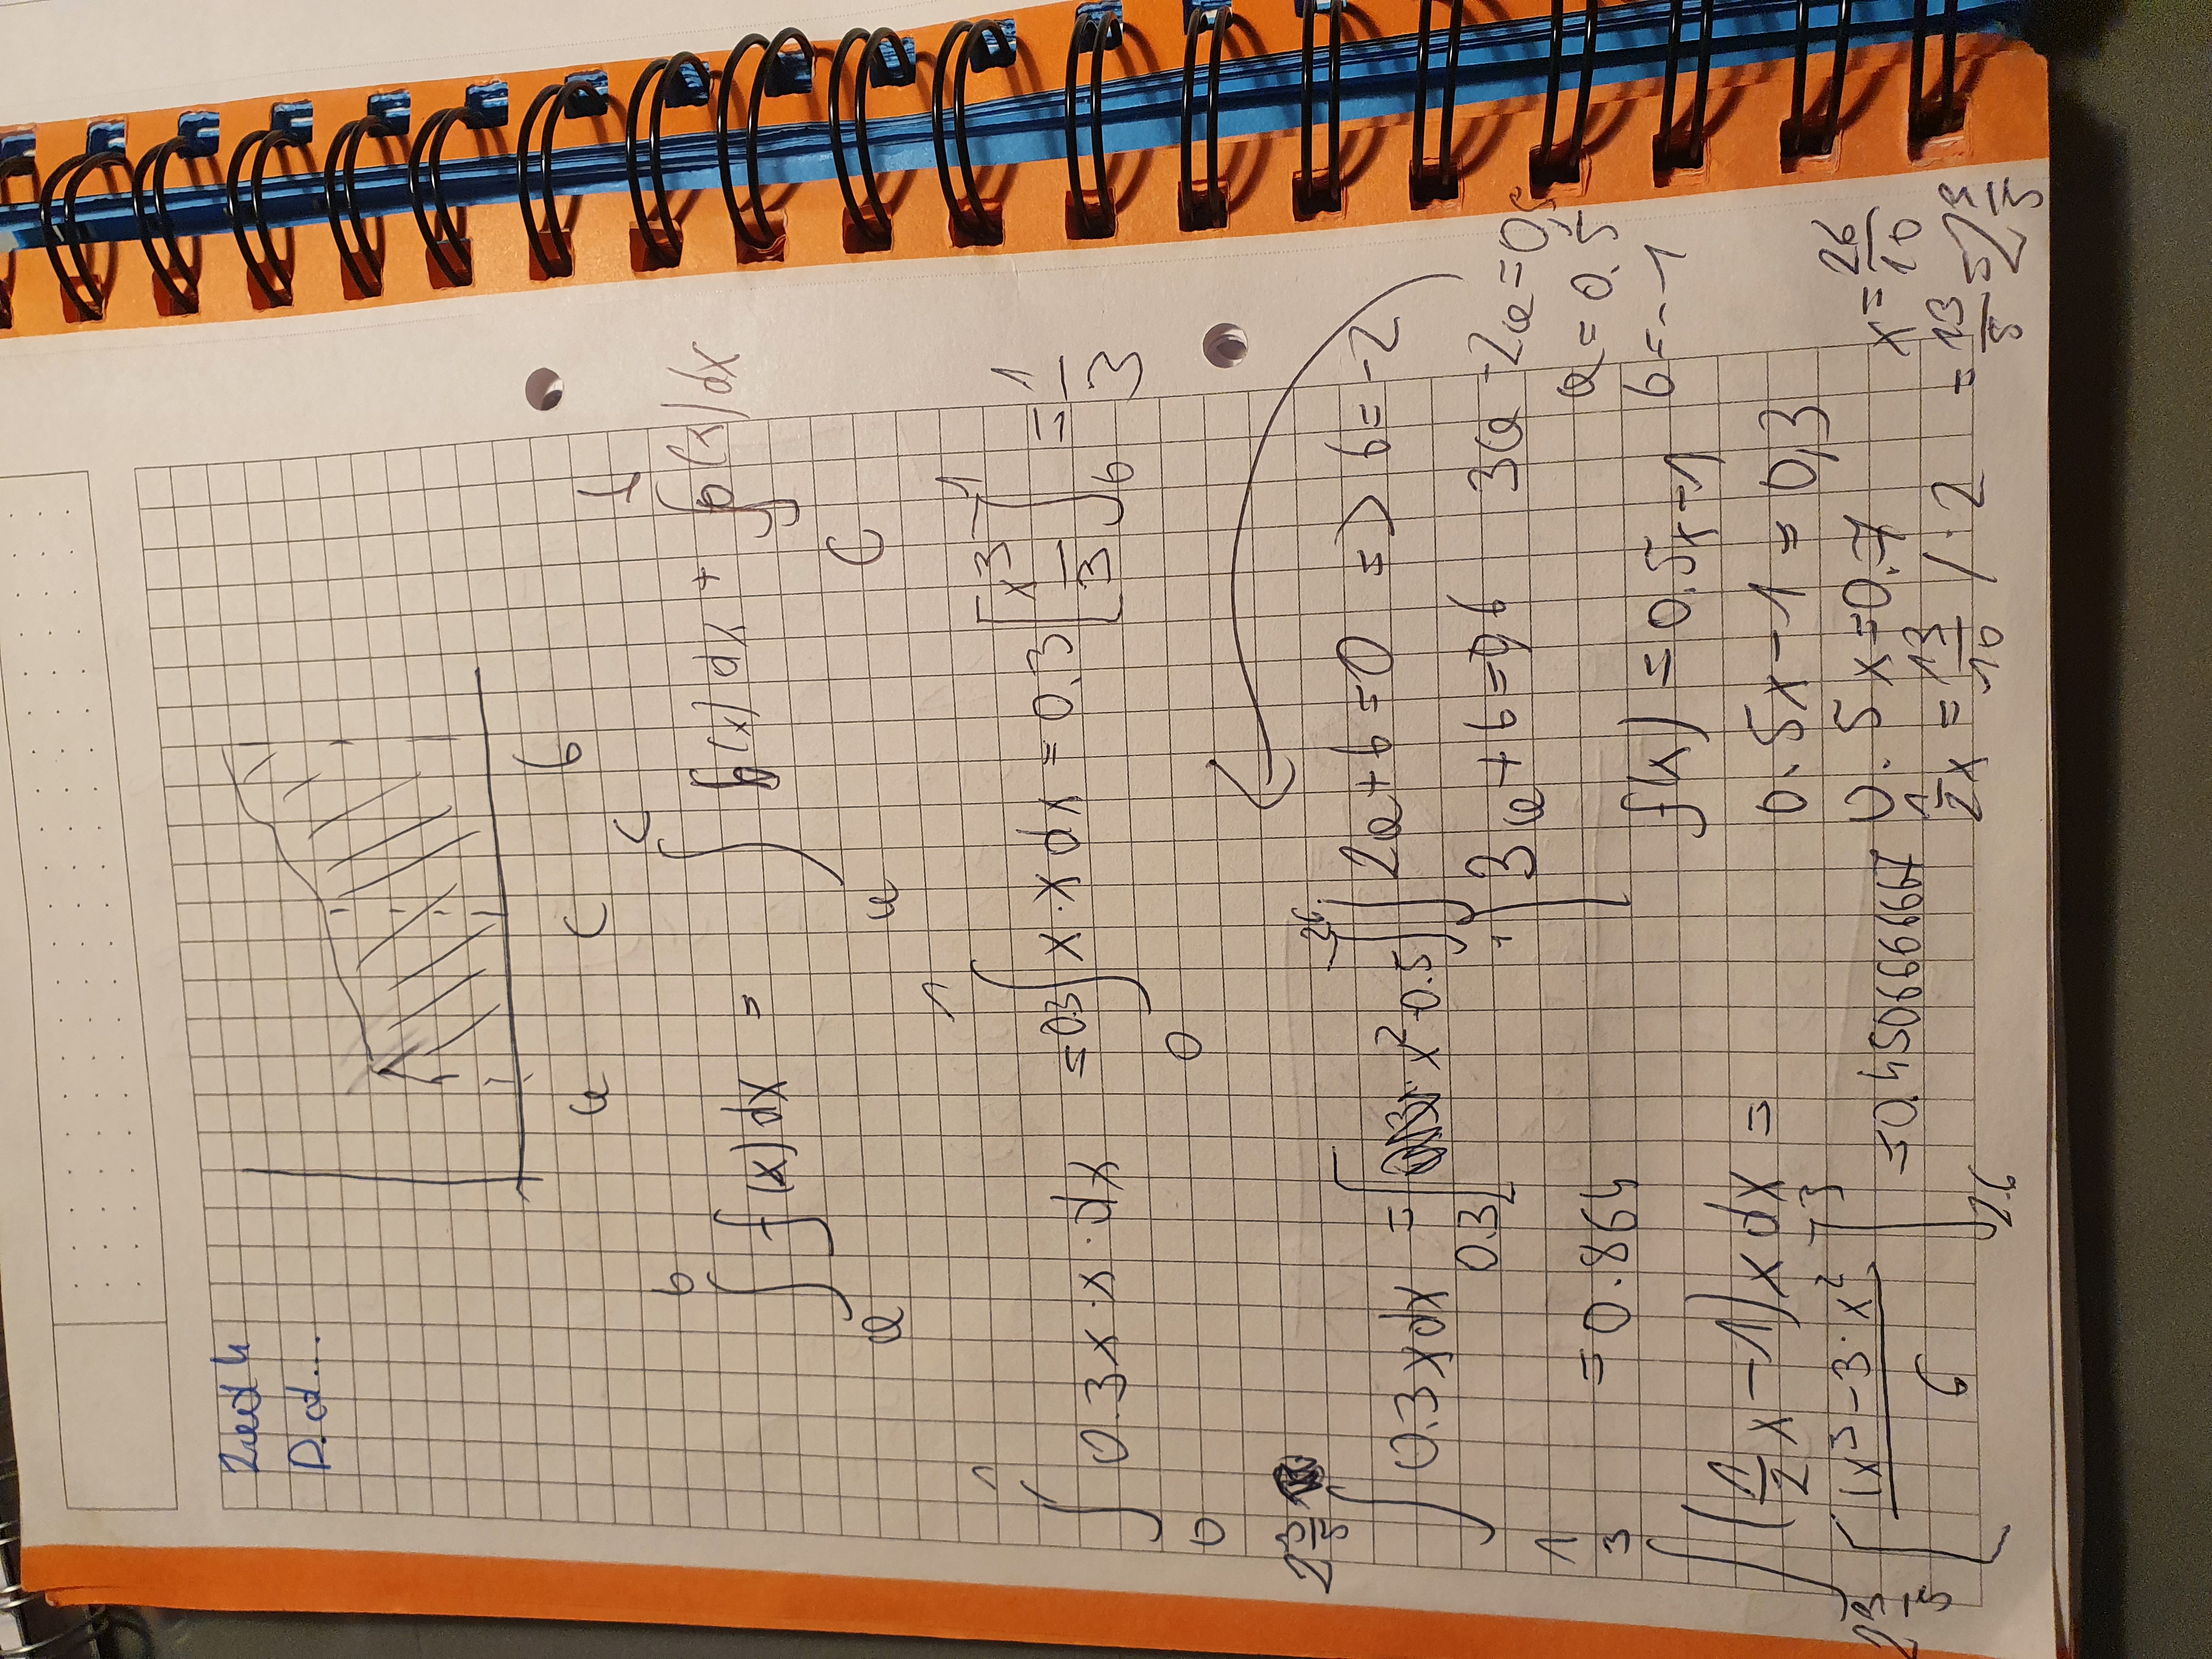 Zad 4
D.d...
a c b
∫_a^b f(x) dx = ∫_a^c f(x) dx + ∫_c^b f(x) dx
∫_0^1 0.3x·x·dx = 0.3 ∫_0^1 x·x dx = 0.3 [x^3/3]_0^1 = 1/3
∫_1^{2 3/5} 0.3x dx = 0.3 [x^2 0.5]_1^{2.6}
= 0.864
2a + b = 0 => b = -2
3a + b = 0,6 3a - 2a = 0,5
a = 0.5
f(x) = 0.5x - 1 b = -1
0.5x - 1 = 0,3
0.5x = 0.7
1/2 x = 13/10 / · 2
x = 26/10
= 13/5 = 2 3/5
∫_{2 3/5}^3 (1/2 x - 1) x dx =
[(x^3 - 3·x^2)/6]_{2.6}^3